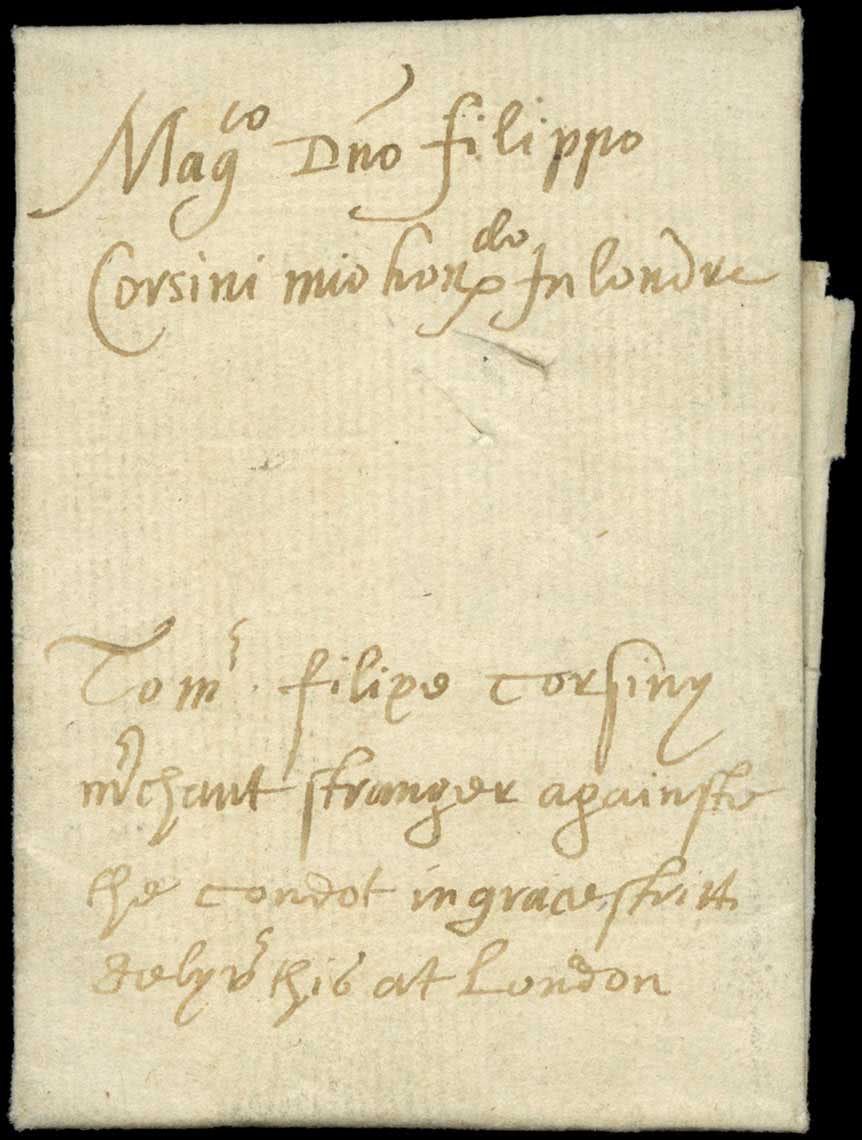 Mag^co Dño filippo
Corsini mio hon^do In londre
To m^r filipe Corsiny
m^rchant stranger againste
the condot in gracestritt
delyv^r this at London